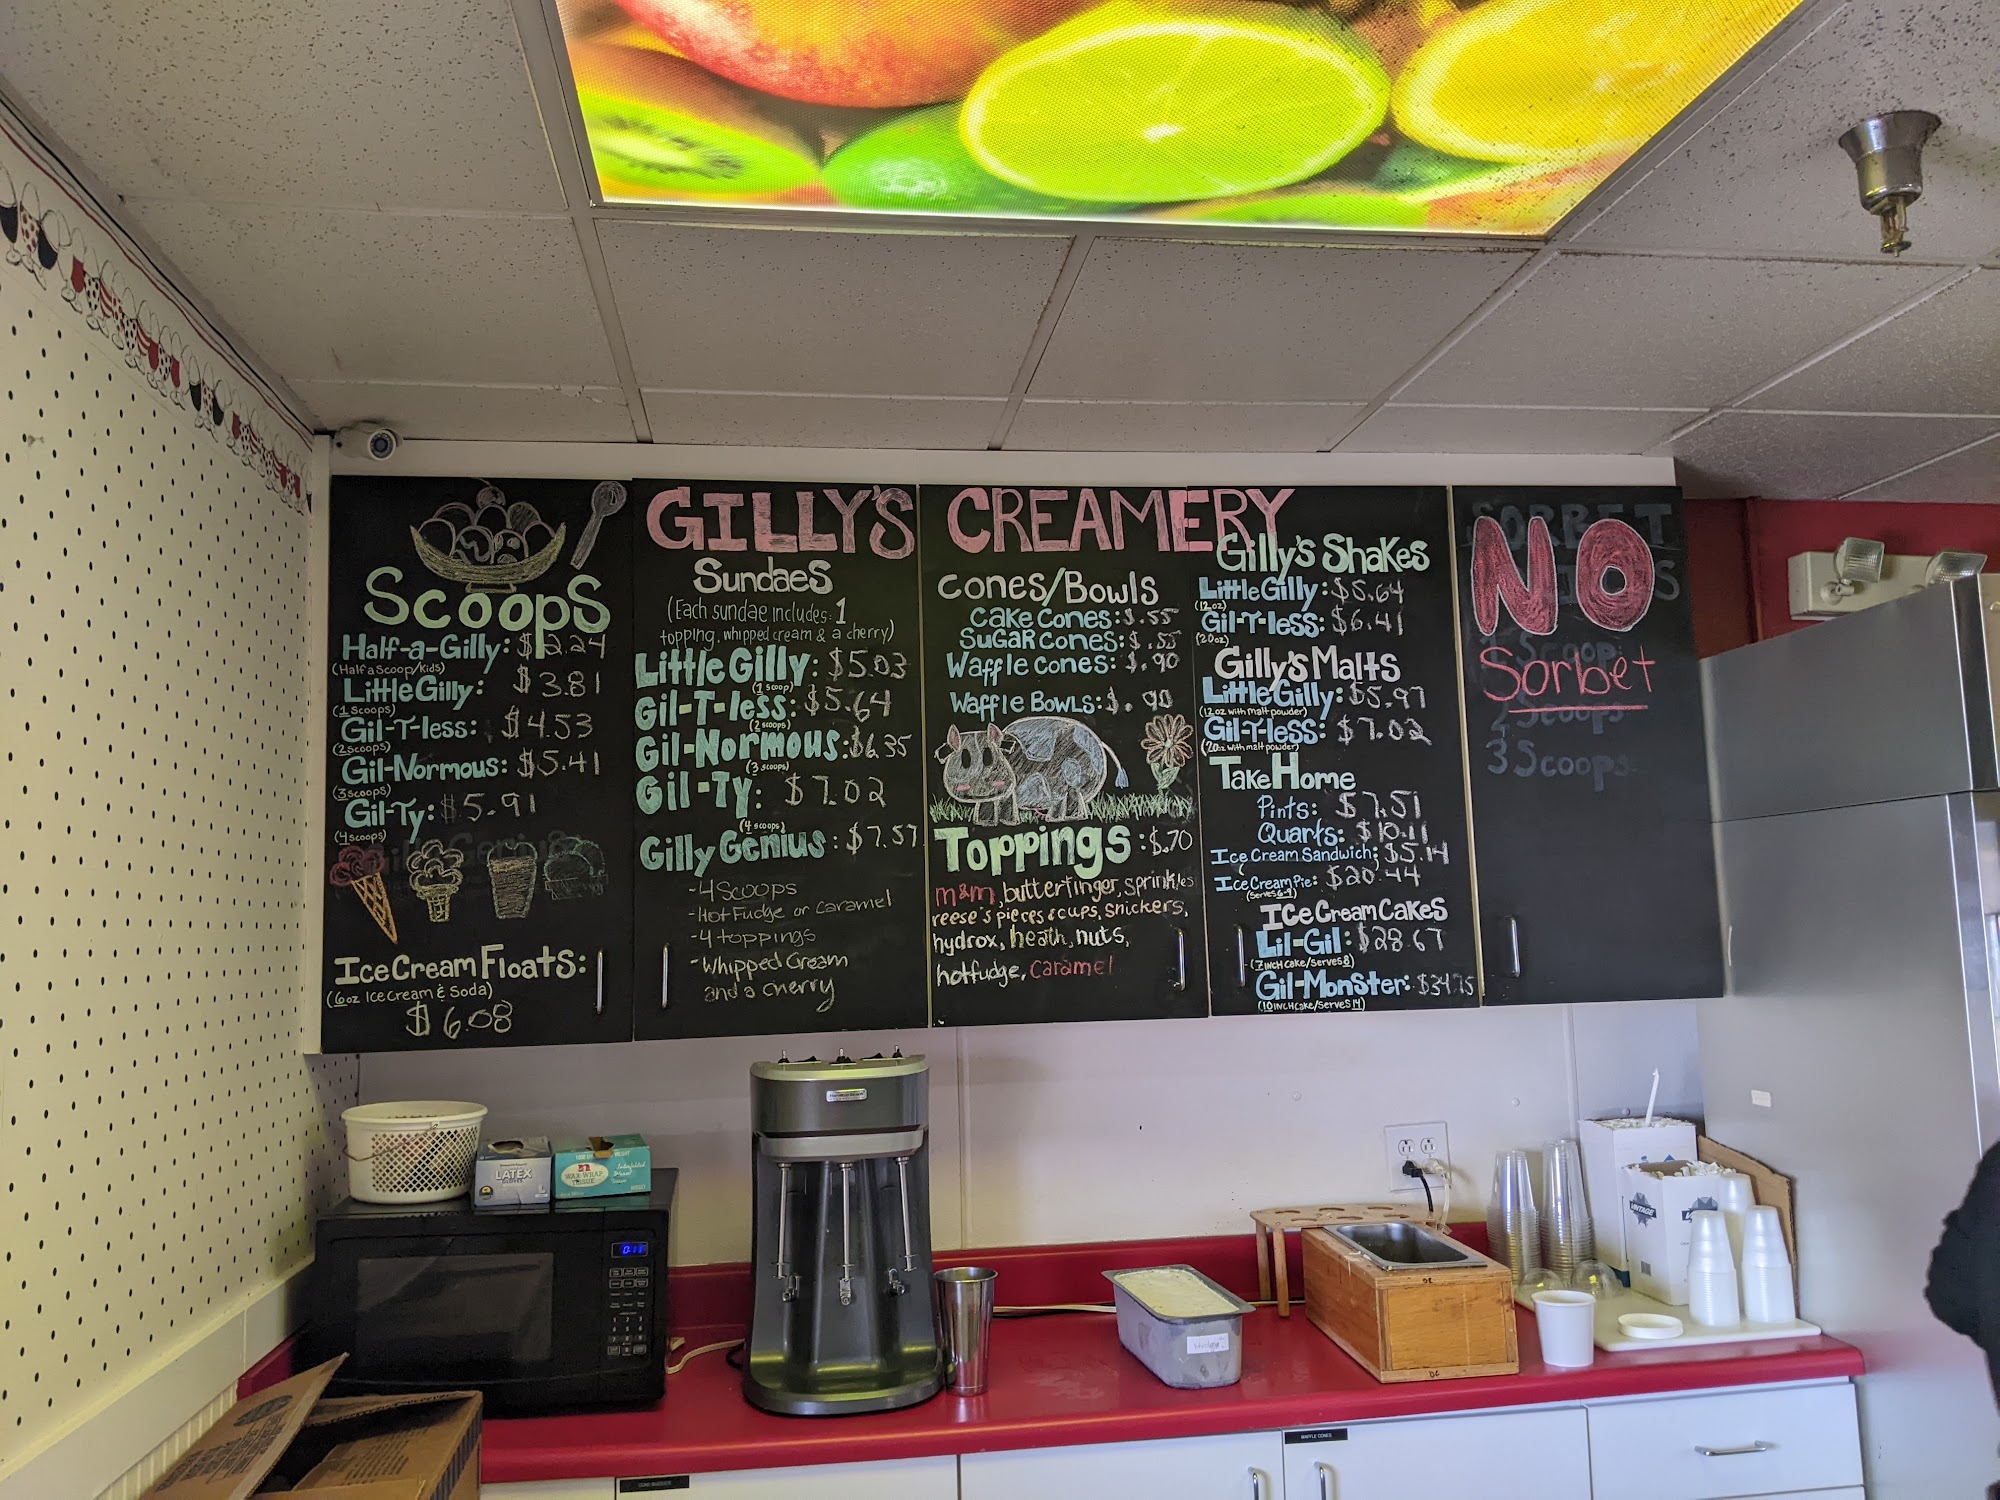 GILLY'S CREAMERY
Scoops
Half-a-Gilly: $2.24
(Half a Scoop/Kids)
Little Gilly: $3.81
(1 Scoops)
Gil-T-less: $4.53
(2 Scoops)
Gil-Normous: $5.41
(3 Scoops)
Gil-Ty: $5.91
(4 Scoops)
Ice Cream Floats:
(6oz Ice Cream & Soda)
$6.08
Sundaes
(Each sundae includes: 1
topping, whipped cream & a cherry)
Little Gilly: $5.03
(1 scoop)
Gil-T-less: $5.64
(2 scoops)
Gil-Normous: $6.35
(3 scoops)
Gil-Ty: $7.02
(4 scoops)
Gilly Genius: $7.57
-4 Scoops
-Hot Fudge or Caramel
-4 toppings
-Whipped Cream
and a cherry
Cones/Bowls
Cake Cones: $.55
Sugar Cones: $.55
Waffle Cones: $.90
Waffle Bowls: $.90
Toppings: $.70
m&m, butterfinger, sprinkles
reese's pieces & cups, snickers,
hydrox, heath, nuts,
hotfudge, caramel
Gilly's Shakes
Little Gilly: $5.64
(12oz)
Gil-T-less: $6.41
(20oz)
Gilly's Malts
Little Gilly: $5.97
(12oz with malt powder)
Gil-T-less: $7.02
(20oz with malt powder)
Take Home
Pints: $7.51
Quarts: $10.11
Ice Cream Sandwich: $5.14
Ice Cream Pie: $20.44
(Serves 6-9)
Ice Cream Cakes
Lil-Gil: $28.67
(7 inch cake/serves 8)
Gil-Monster: $34.75
(10 inch cake/serves 14)
SORBET
NO
Sorbet
Scoop:
2 Scoops
3 Scoops
LATEX
WAX WRAP
TISSUE
0:11
VINTAGE
WAFFLE CONES